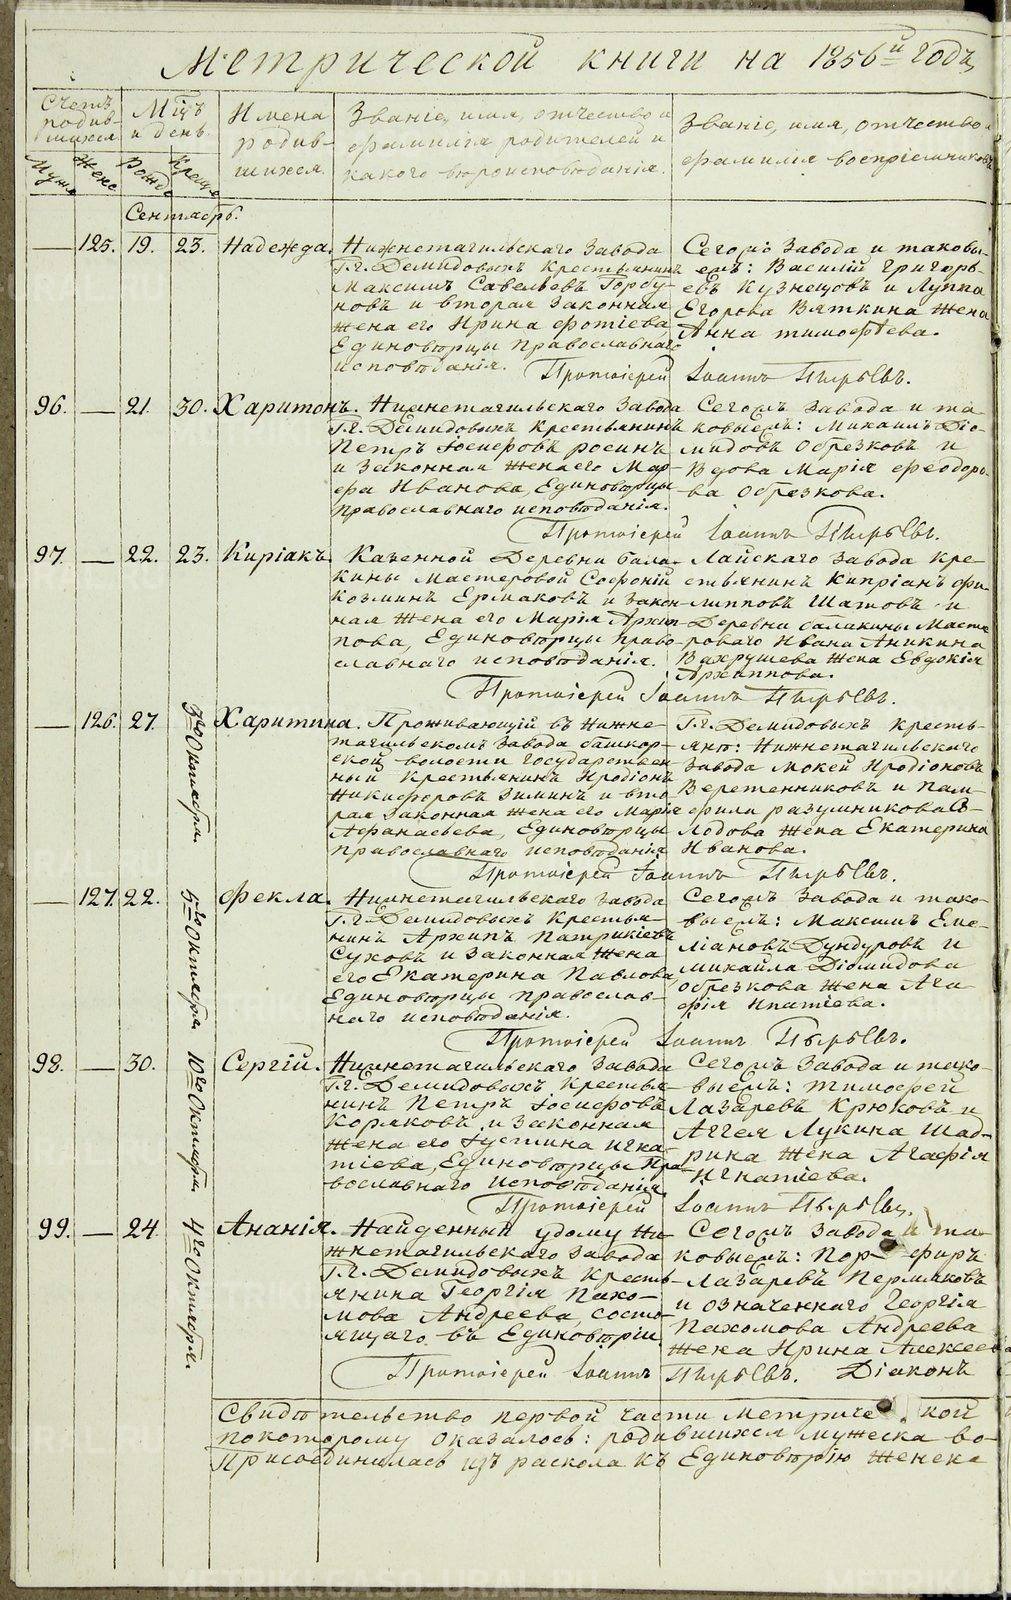 Метрической книги на 1856й годъ,
Счетъ родив-шихся
Муж. Жене
Мцъ и день.
Рожд. Креще
Имена родив-шихся.
Званіе, имя, отчество и фамилія родителей и какого вѣроисповѣданія.
Званіе, имя, отчество и фамилія воспріемниковъ
Сентябрь.
— 125. 19. 23. Надежда.
Нижнетагильскаго Завода
Г.г. Демидовыхъ крестьянинъ
Максимъ Савельевъ Горбу-
новъ и вторая законная
жена его Ирина Фотіева
Единовѣрцы православнаго
исповѣданія.
Сегожъ Завода и таковы-
емъ: Василій Григорь-
евъ Кузнецовъ и Луппа
Егорова Вяткина жена
Анна Тимофѣева.
Протоіерей Іоаннъ Пырьевъ.
96. — 21. 30. Харитонъ.
Нижнетагильскаго Завода
Г.г. Демидовыхъ крестьянинъ
Петръ Іосифовъ Росинъ
и законная жена его Мар-
фа Иванова, Единовѣрцы
православнаго исповѣданія.
Сегожъ Завода и та-
ковыемъ: Михаилъ Діо-
мидовъ Обрезковъ и
Вдова Марія Феодоро-
ва Обрезкова.
Протоіерей Іоаннъ Пырьевъ.
97. — 22. 23. Киріакъ.
Казенной Деревни Бала-
кины Мастеровой Софоній
Козминъ Ермаковъ и закон-
ная жена его Марія Архип-
пова, Единовѣрцы право-
славнаго исповѣданія.
Лайскаго Завода кре-
стьянинъ Кипріанъ Фи-
липповъ Шатовъ и
Деревни Балакины Масте
роваго Ивана Аникина
Вахрушева жена Евдокія
Архиппова.
Протоіерей Іоаннъ Пырьевъ.
— 126. 27. 3го Октября. Харитина.
Проживающій въ Нижне-
тагильскомъ Завода Башкар-
ской волости Государствен-
ный крестьянинъ Иродіонъ
Никифоровъ Зиминъ и вто-
рая законная жена его Марія
Афанасьева, Единовѣрцы
православнаго исповѣданія
Г.г. Демидовыхъ кресть-
яне: Нижнетагильскаго
Завода Мокей Иродіоновъ
Веретенниковъ и Пам-
фила Разумникова В-
лодова жена Екатерина
Иванова.
Протоіерей Іоаннъ Пырьевъ.
— 127. 22. 5го Октября Фекла.
Нижнетагильскаго Завода
Г.г. Демидовыхъ крестья-
нинъ Архипъ Патрикіевъ
Суховъ и законная жена
его Екатерина Павлова
Единовѣрцы православ-
наго исповѣданія.
Сегожъ Завода и тако-
выемъ: Максимъ Еме-
ліановъ Дундуровъ и
Михаила Діомидова
Обрезкова жена Ага-
фія Ипатіева.
Протоіерей Іоаннъ Пырьевъ.
98. — 30. 10го Октября. Сергій.
Нижнетагильскаго Завода
Г.г. Демидовыхъ крестья-
нинъ Петръ Іосифовъ
Коряковъ и законная
жена его Іустина Игна-
тіева, Единовѣрцы пра-
вославнаго исповѣданія.
Сегожъ Завода и тако-
выемъ: Тимофей
Лазаревъ Крюковъ и
Аггея Лукина Шад-
рина жена Агафія
Игнатіева.
Протоіерей Іоаннъ Пырьевъ.
99. — 24. 4го Октября. Ананія.
Найденный у дому Ни-
жнетагильскаго Завода
Г.г. Демидовыхъ кресть-
янина Георгія Пахо-
мова Андреева, состо-
ящаго въ Единовѣріи.
Сегожъ Завода и та-
ковыемъ: Порфиръ
Лазаревъ Пермяковъ
и означеннаго Георгія
Пахомова Андреева
жена Ирина Алексеев
Протоіерей Іоаннъ Пырьевъ. Діаконъ
Свидѣтельство первой части Метриче кой
по которому оказалось: родившихся мужеска по-
Присоединилась изъ раскола къ Единовѣрію женска
METRIKI.GASO-URAL.RU